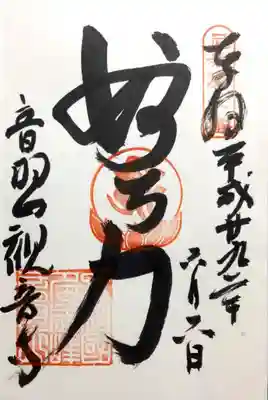 奉拝 平成廿九年
六月六日
妙音力
音羽山観音寺